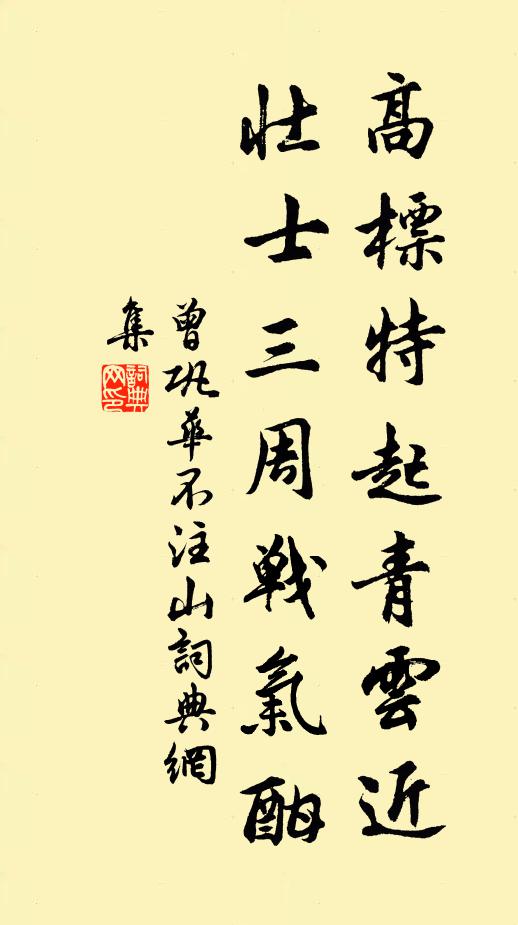 高標特起青雲近
壯士三周戰氣酣
曾巩華不注山詞典網
集
詞典
网印